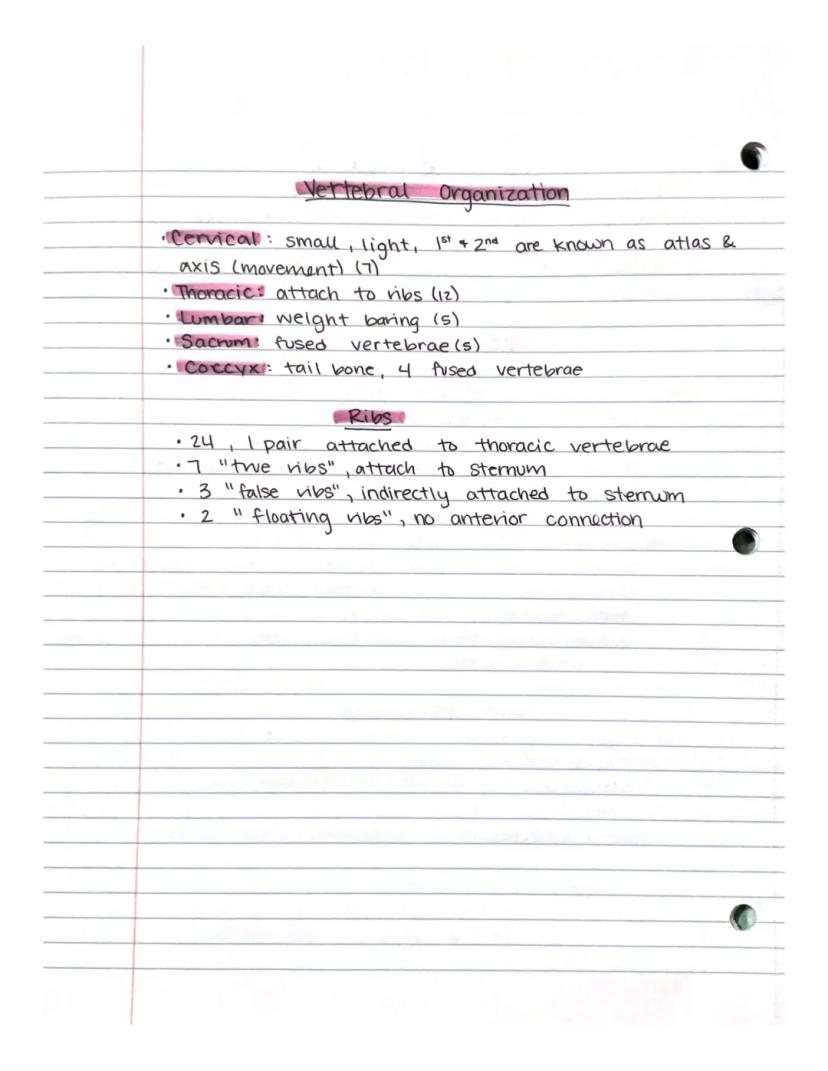 Vertebral Organization
• Cervical: small, light, 1st & 2nd are known as atlas &
axis (movement) (7)
• Thoracic: attach to ribs (12)
• Lumbar: weight baring (5)
• Sacrum: fused vertebrae (5)
• Coccyx: tail bone, 4 fused vertebrae
Ribs
• 24, 1 pair attached to thoracic vertebrae
• 7 "true ribs", attach to sternum
• 3 "false ribs", indirectly attached to sternum
• 2 "floating ribs", no anterior connection